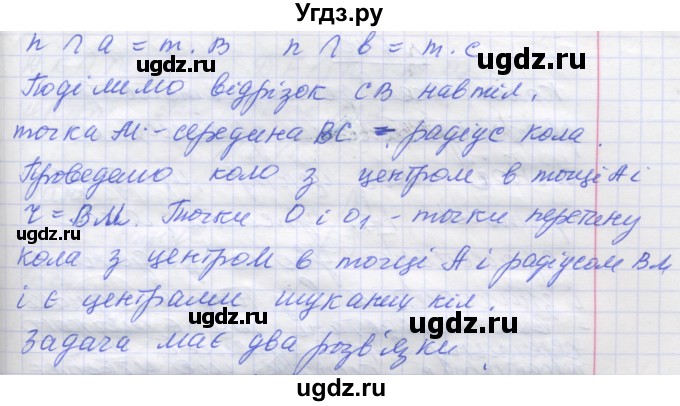 Угдз.ру
n ∩ a = т. B n ∩ b = т. C
Поділимо відрізок CB навпіл,
точка M - середина BC = радіус кола.
Проведемо коло з центром в точці A і
r = BM. Точки O і O₁ - точки перетину
кола з центром в точці A і радіусом BM
і є центрами шуканих кіл.
Задача має два розв'язки.
ugdz.ru
ugdz.ru
ugdz.ru
ugdz.ru
ugdz.ru
ugdz.ru
ugdz.ru
ugdz.ru